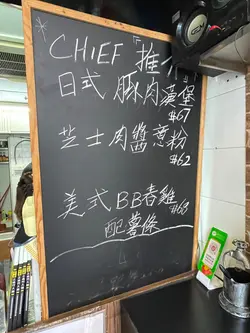 CHIEF "推介
日式豚肉漢堡
$67
芝士肉醬意粉
$62
美式BB春雞
$68
配薯條